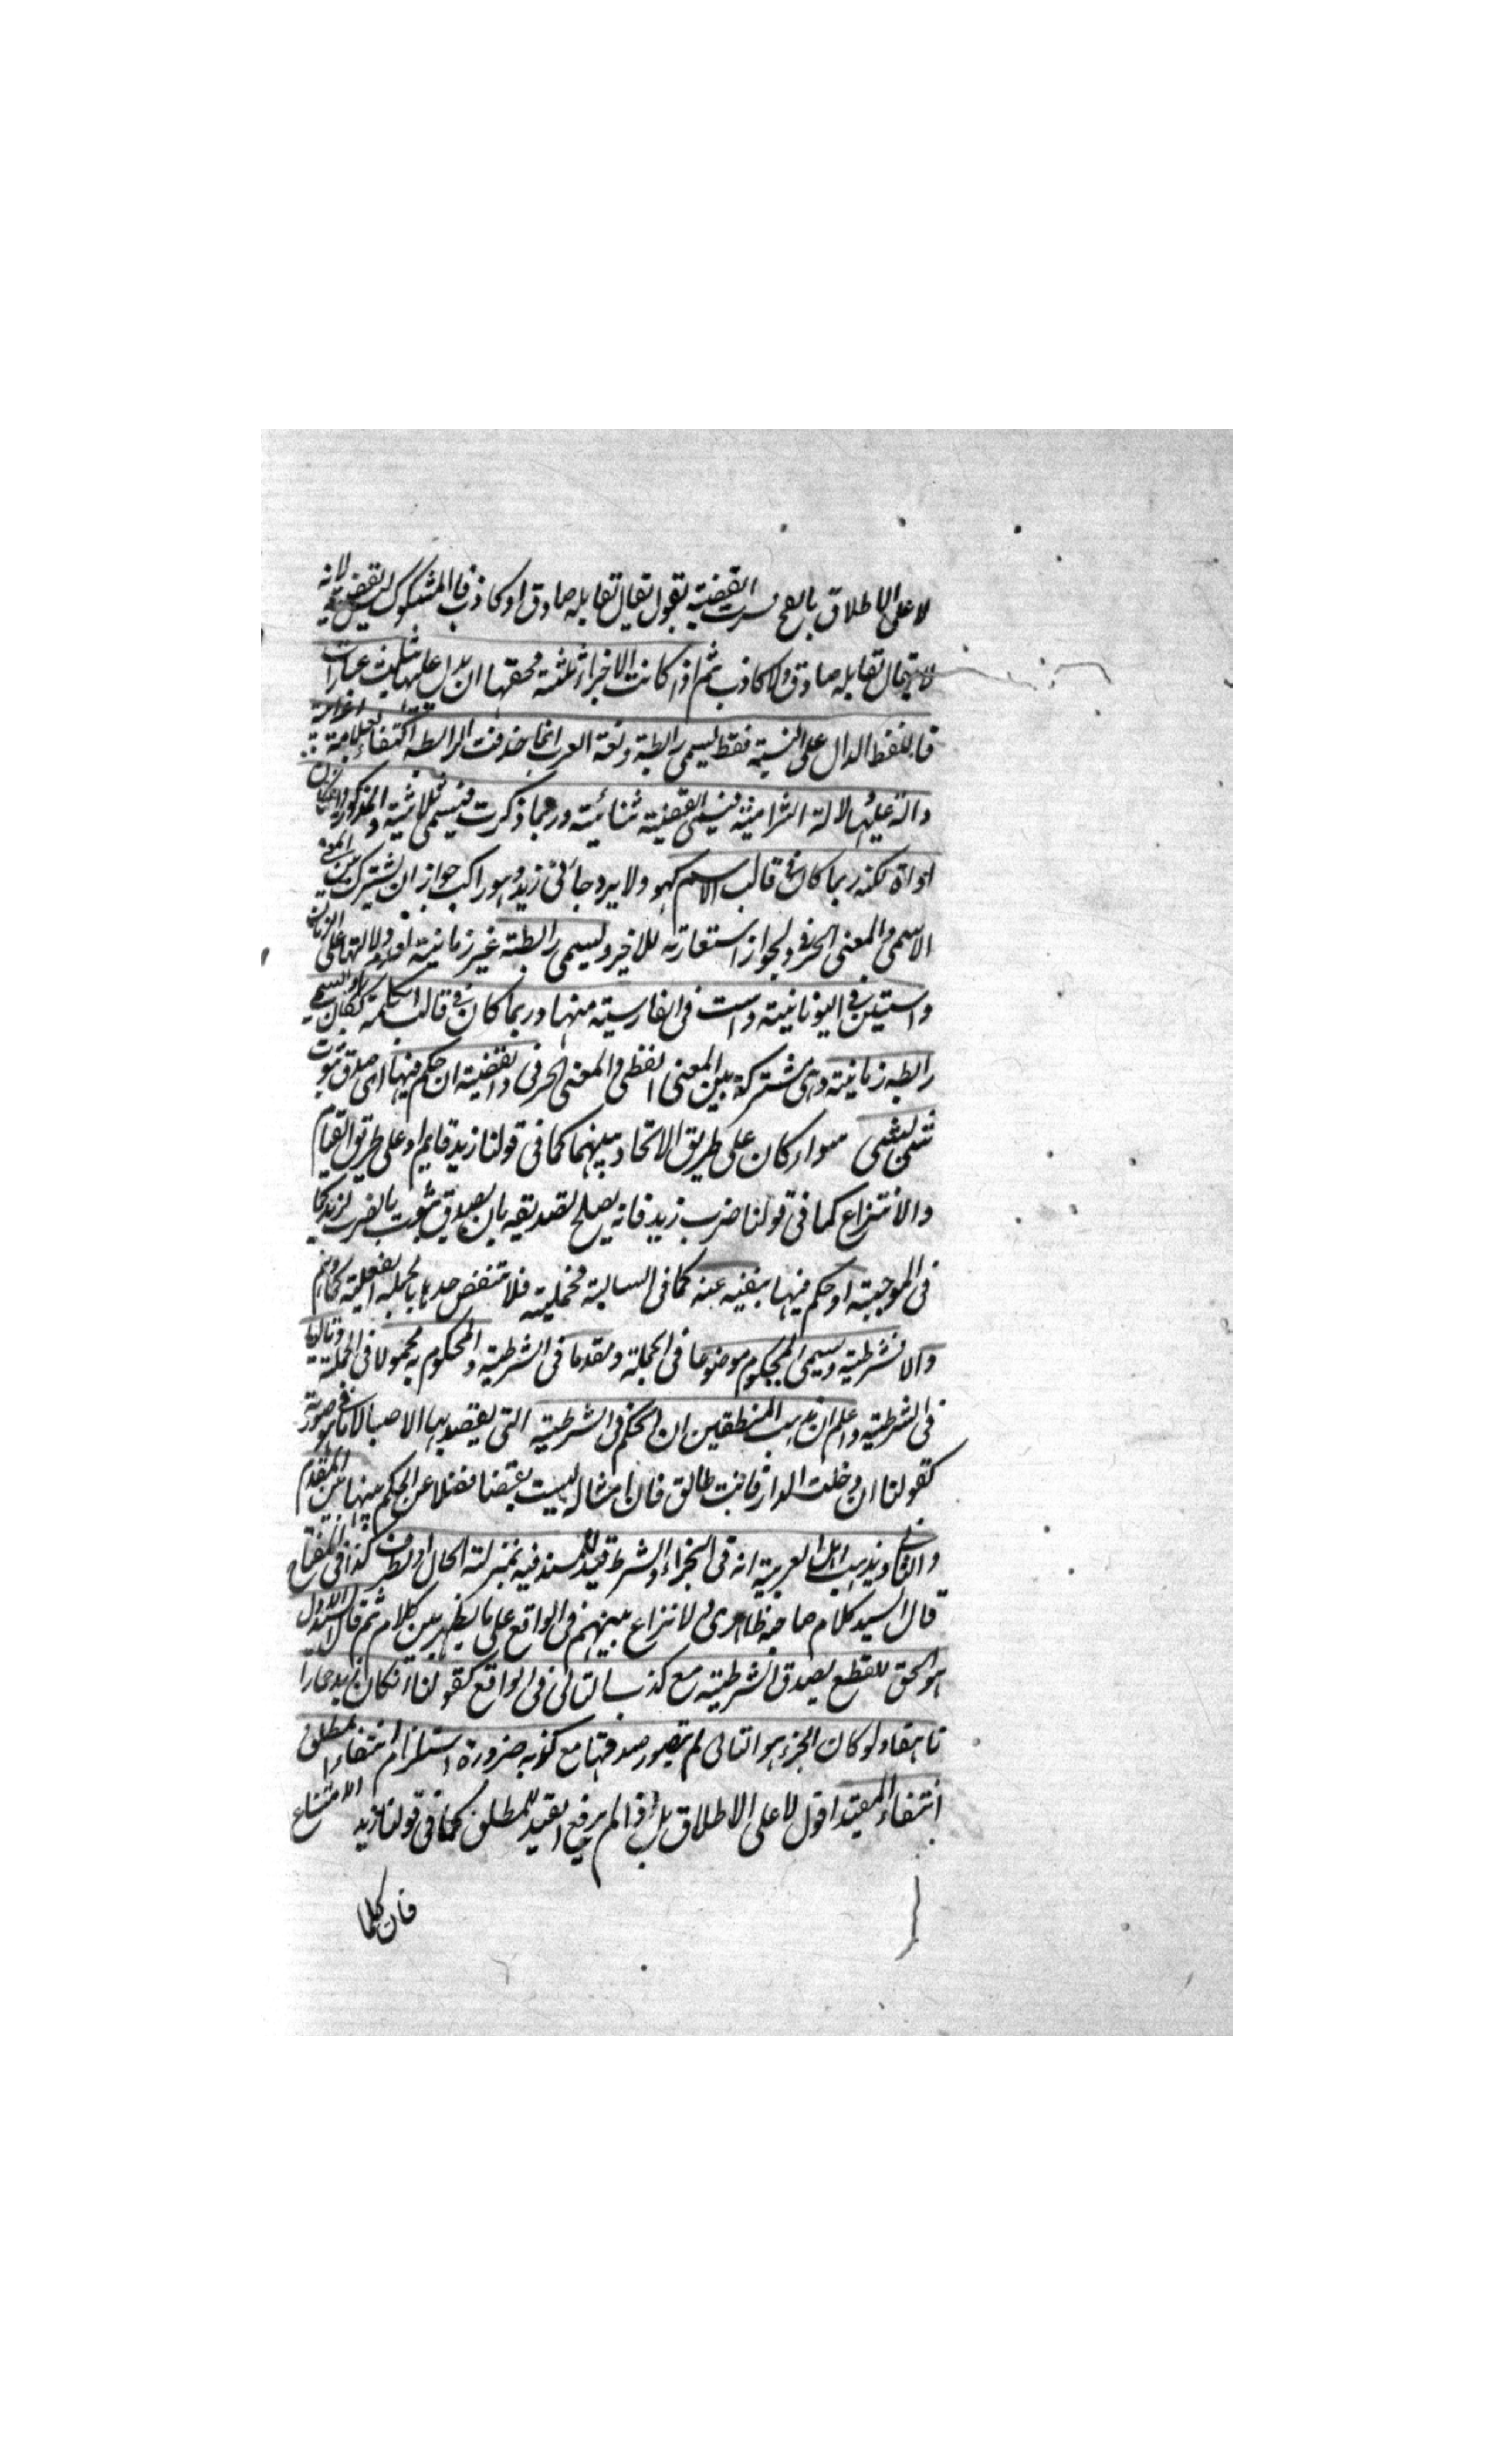 لا على الاطلاق بالفتح فسرت القضية بقول يقال لقايله صادق او كاذب فالمشكوك ليس بقضية لانه
لا يقال لقايله صادق ولا كاذب ثم اذا كانت الاجزاء ثلثة فحقها ان يدل عليها بثلث عبارات
فاللفظ الدال على النسبة فقط يسمى رابطة ولغة العرب انما حذفت الرابطة اكتفاء بعلامة اعرابية
دالة عليها دلالة التزامية فيسمى القضية ثنائية وربما ذكرت فيسمى ثلاثية والمذكورة
اداة لكنه ربما كان فى قالب الاسم كهو ولا يرد جائنى زيد وهو راكب جواز ان يشترك بين المعنى
الاسمى والمعنى الحرفى ولجواز استعارته للاخير وليسمى رابطة غير زمانية لعدم دلالتها على الزمان
واستين فى اليونانية واست فى الفارسية منها وربما كان فى قالب الكلمة ككان ويسمى
رابطه زمانية وهى مشتركة بين المعنى اللفظى والمعنى الحرفى والقضية ان حكم فيها اى صدق ثبوت
شئ لشئ سواء كان على طريق الاتحاد بينهما كما فى قولنا زيد قايم او على طريق القيام
والانتزاع كما فى قولنا ضرب زيد فانه يصلح لتصديقه بان يصدق ثبوت الضرب لزيد كما
فى الموجبة او حكم فيها بنفيه عنه كما فى السالبة فحملية فلا تنقض حدها بالجملة الفعلية كما وهم
والا فشرطية ويسمى المحكوم موضوعا فى الحملية ومقدما فى الشرطية والمحكوم به محمولا فى الحملية وتاليا
فى الشرطية واعلم ان مذهب المنطقين ان الحكم فى الشرطية التى يقصد بها الاخبار لا ما هو فى صورته
كقولنا ان دخلت الدار فانت طالق فان امثاله ليست بقضايا فضلا عن الحكم فيها بين المقدم
والتالى ومذهب اهل العربية انه فى الجزاء والشرط قيد للمسند فيه بمنزلة الحال او الظرف كذا فى المفتاح
قال السيد كلام صاحبه ظاهرى ولا نزاع بينهم فى الواقع على ما يظهر من كلام ثم قال السيد الاول
هو الحق للقطع بصدق الشرطية مع كذب التالى فى الواقع كقولنا ان كان زيد حمارا
ناهقا ولو كان الجزء هو التالى لم يتصور صدقها مع كذبه ضرورة استلزام انتفاء المطلق
انتفاء المقيد اقول لا على الاطلاق بل اذا لم يرفع القيد المطلق كما فى قولنا زيد الامتناع
فان كلما